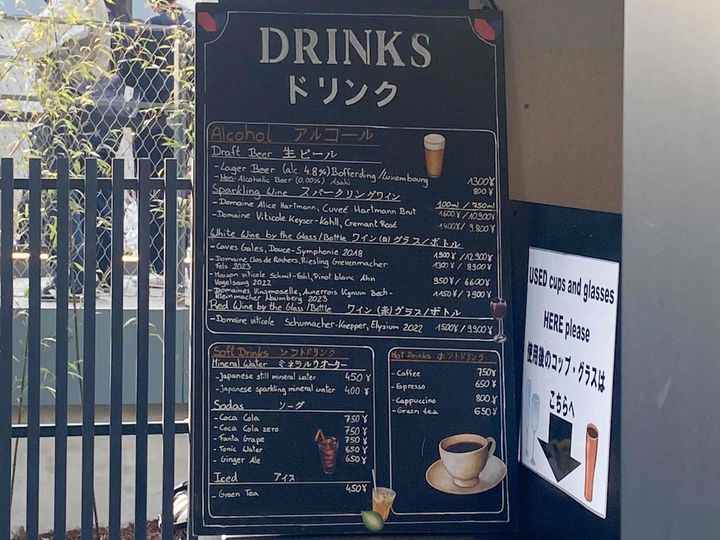 DRINKS
ドリンク
Alcohol アルコール
Draft Beer 生ビール
- Lager Beer (alc 4.8%) Bofferding/Luxembourg 1300¥
- Non-Alcoholic Beer (0,00%) Asahi 800¥
Sparkling Wine スパークリングワイン 100ml / 750ml
- Domaine Alice Hartmann, Cuveé Hartmann Brut 1600¥ / 10900¥
- Domaine Viticole Keyser-Kohll, Cremant Rosé 1400¥ / 9.800¥
White Wine by the Glass/Bottle ワイン(白)グラス/ボトル
- Caves Gales, Douce-Symphonie 2018 1900¥ / 12.900¥
- Domaine Clos de Rochers, Riesling Grevenmacher 1300¥ / 8900¥
Fels 2023
- Maison viticole Schmit-Fohl, Pinot blanc Ahn 950¥ / 6600¥
Vogelsang 2022
- Domaines Vinsmoselle, Auxerrois Vignum Bech- 1150¥ / 7900¥
Kleinmacher Naumberg 2023
Red Wine by the Glass/Bottle ワイン(赤)グラス/ボトル
- Domaine viticole Schumacher-Knepper, Elysium 2022 1500¥ / 9.900¥
Soft Drinks ソフトドリンク
Mineral Water ミネラルウオーター
- Japanese still mineral water 450¥
- Japanese sparkling mineral water 400¥
Sodas ソーダ
- Coca Cola 750¥
- Coca Cola zero 750¥
- Fanta Grape 750¥
- Tonic Water 650¥
- Ginger Ale 650¥
Iced アイス
- Green Tea 450¥
Hot Drinks ホットドリンク
- Coffee 750¥
- Espresso 650¥
- Cappuccino 800¥
- Green tea 650¥
USED cups and glasses
HERE please
使用後のコップ・グラスは
こちらへ